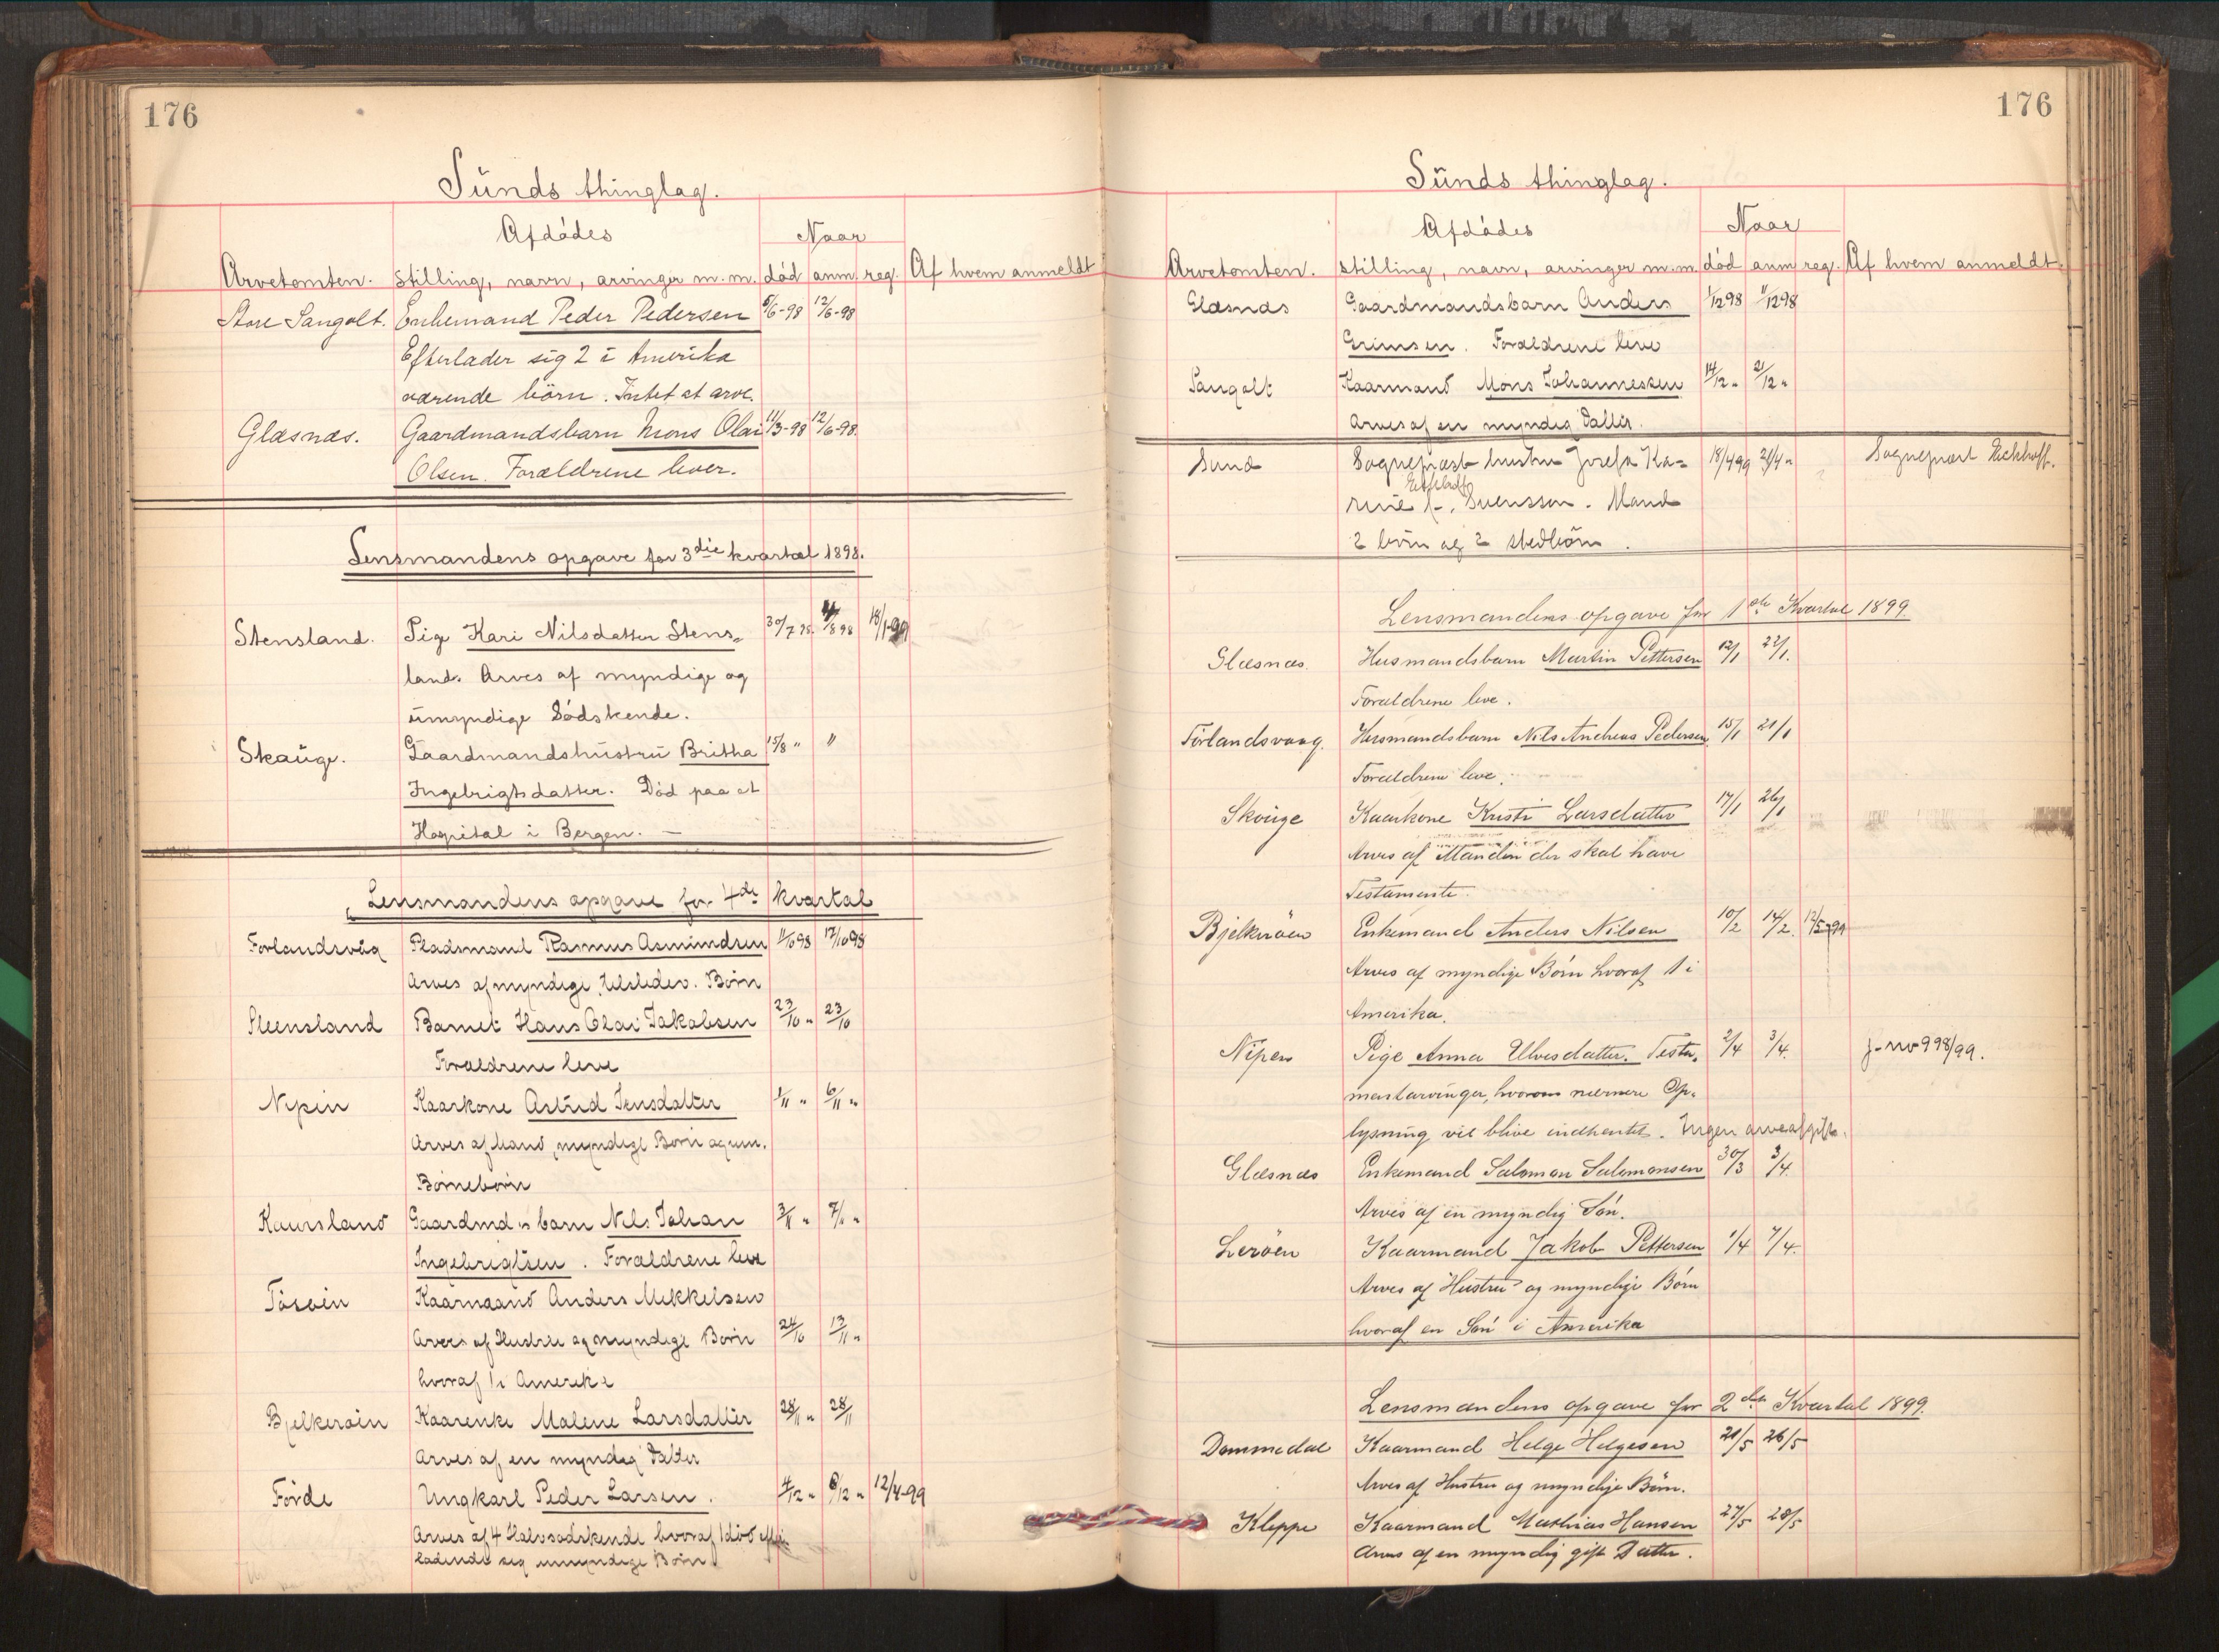 176
Sünds thinglag.
Afdödes
Naar
Arvetomten. Stilling, navn, arvinger m. m. död anm. reg. Af hvem anmeldt
Store Sangolt. Enkemand Peder Pedersen 5/6-98 12/6-98
Efterlader sig 2 i Amerika
værende börn. Intet at arve.
Glæsnæs. Gaardmandsbarn Mons Olai 11/3-98 12/6-98.
Olsen. Forældrene lever.
Lensmandens opgave for 3die kvartal 1898.
Stensland. Pige Kari Nilsdatter Stens- 30/7 98. /8 98 18/1-99
land. Arves af myndige og
ümyndige Södskende.
Skaüge. Gaardmandshüstrü Britha 15/8 " "
Ingebrigtsdatter. Död paa et
Hospital i Bergen. —
Lensmandens opgave for 4de kvartal
Forlandsvåg Pladsmand Rasmus Asmundsen 11/10 98 17/10 98
Arves af myndige, tilsteder. Börn
Steensland Barnet Hans Olai Jakobsen 23/10 " 23/10
Forældrene leve
Nipen Kaarkone Astrid Jensdatter 1/11 " 6/11 "
Arves af Mand, myndige Börn og um.
Börnebörn
Kausland Gaardmds barn Nils Johan 3/11 " 7/11 "
Ingebrigtsen. Forældrene leve
Kaarmand Anders Mikkelsen
Arves af Hustru og myndige Börn 24/10 13/11 "
hvoraf 1 i Amerika
Bjelkeröin Kaarenke Malene Larsdatter 28/11 " 28/11
Arves af en myndig Datter
Förde Ungkarl Peder Larsen. 4/12 " 8/12 " 12/4-99
Arves af 4 Halvsödskende hvoraf 1 död efter
ladende sig umyndige Börn
176
Sünds thinglag.
Afdödes
Naar
Arvetomten. Stilling, navn, arvinger m. m. död anm reg. Af hvem anmeldt.
Glæsnæs Gaardmandsbarn Anders 1/12 98 11/12 98
Grimsen. Forældrene leve
Sangolt Kaarmand Mons Johannesen 14/12 " 21/12 "
Arves af en myndig Datter.
Sund Sogneprest hustru Josefa Ka- 18/4 99 21/4 " Sogneprest Eickhoff.
rine f. Svensson. Mand
2 börn og 2 stedbörn.
Lensmandens opgave for 1ste Kvartal 1899
Glæsnæs. Husmandsbarn Martin Pettersen 12/1 22/1.
Forældrene leve.
Förlandsvaag. Husmandsbarn Nils Andreas Pedersen 15/1 21/1
Forældrene leve.
Skouge Kaarkone Kristi Larsdatter 17/1 26/1
Arves af Manden der skal have
Testamente.
Bjelkeröen Enkemand Anders Nilsen 10/2 14/2. 12/5-99
Arves af myndige Börn hvoraf 1 i
Amerika.
Nipen Pige Anna Ulvesdatter. Testa- 2/4 3/4. j-no 998/99.
mentarvinger, hvorom nærmere Op-
lysning vil blive indhentet. Ingen arveafgift.
Glæsnæs Enkemand Salomon Salomonsen 30/3 3/4.
Arves af en myndig Sön.
Leröen Kaarmand Jakob Pettersen 1/4 7/4.
Arves af Hustru og myndige Börn
hvoraf en Sön i Amerika
Lensmandens opgave for 2det Kvartal 1899.
Dommedal Kaarmand Helge Helgesen 21/5 26/5
Arves af Hustru og myndige Börn.
Kleppe Kaarmand Mathias Hansen 27/5 28/5
Arves af en myndig gift Datter.